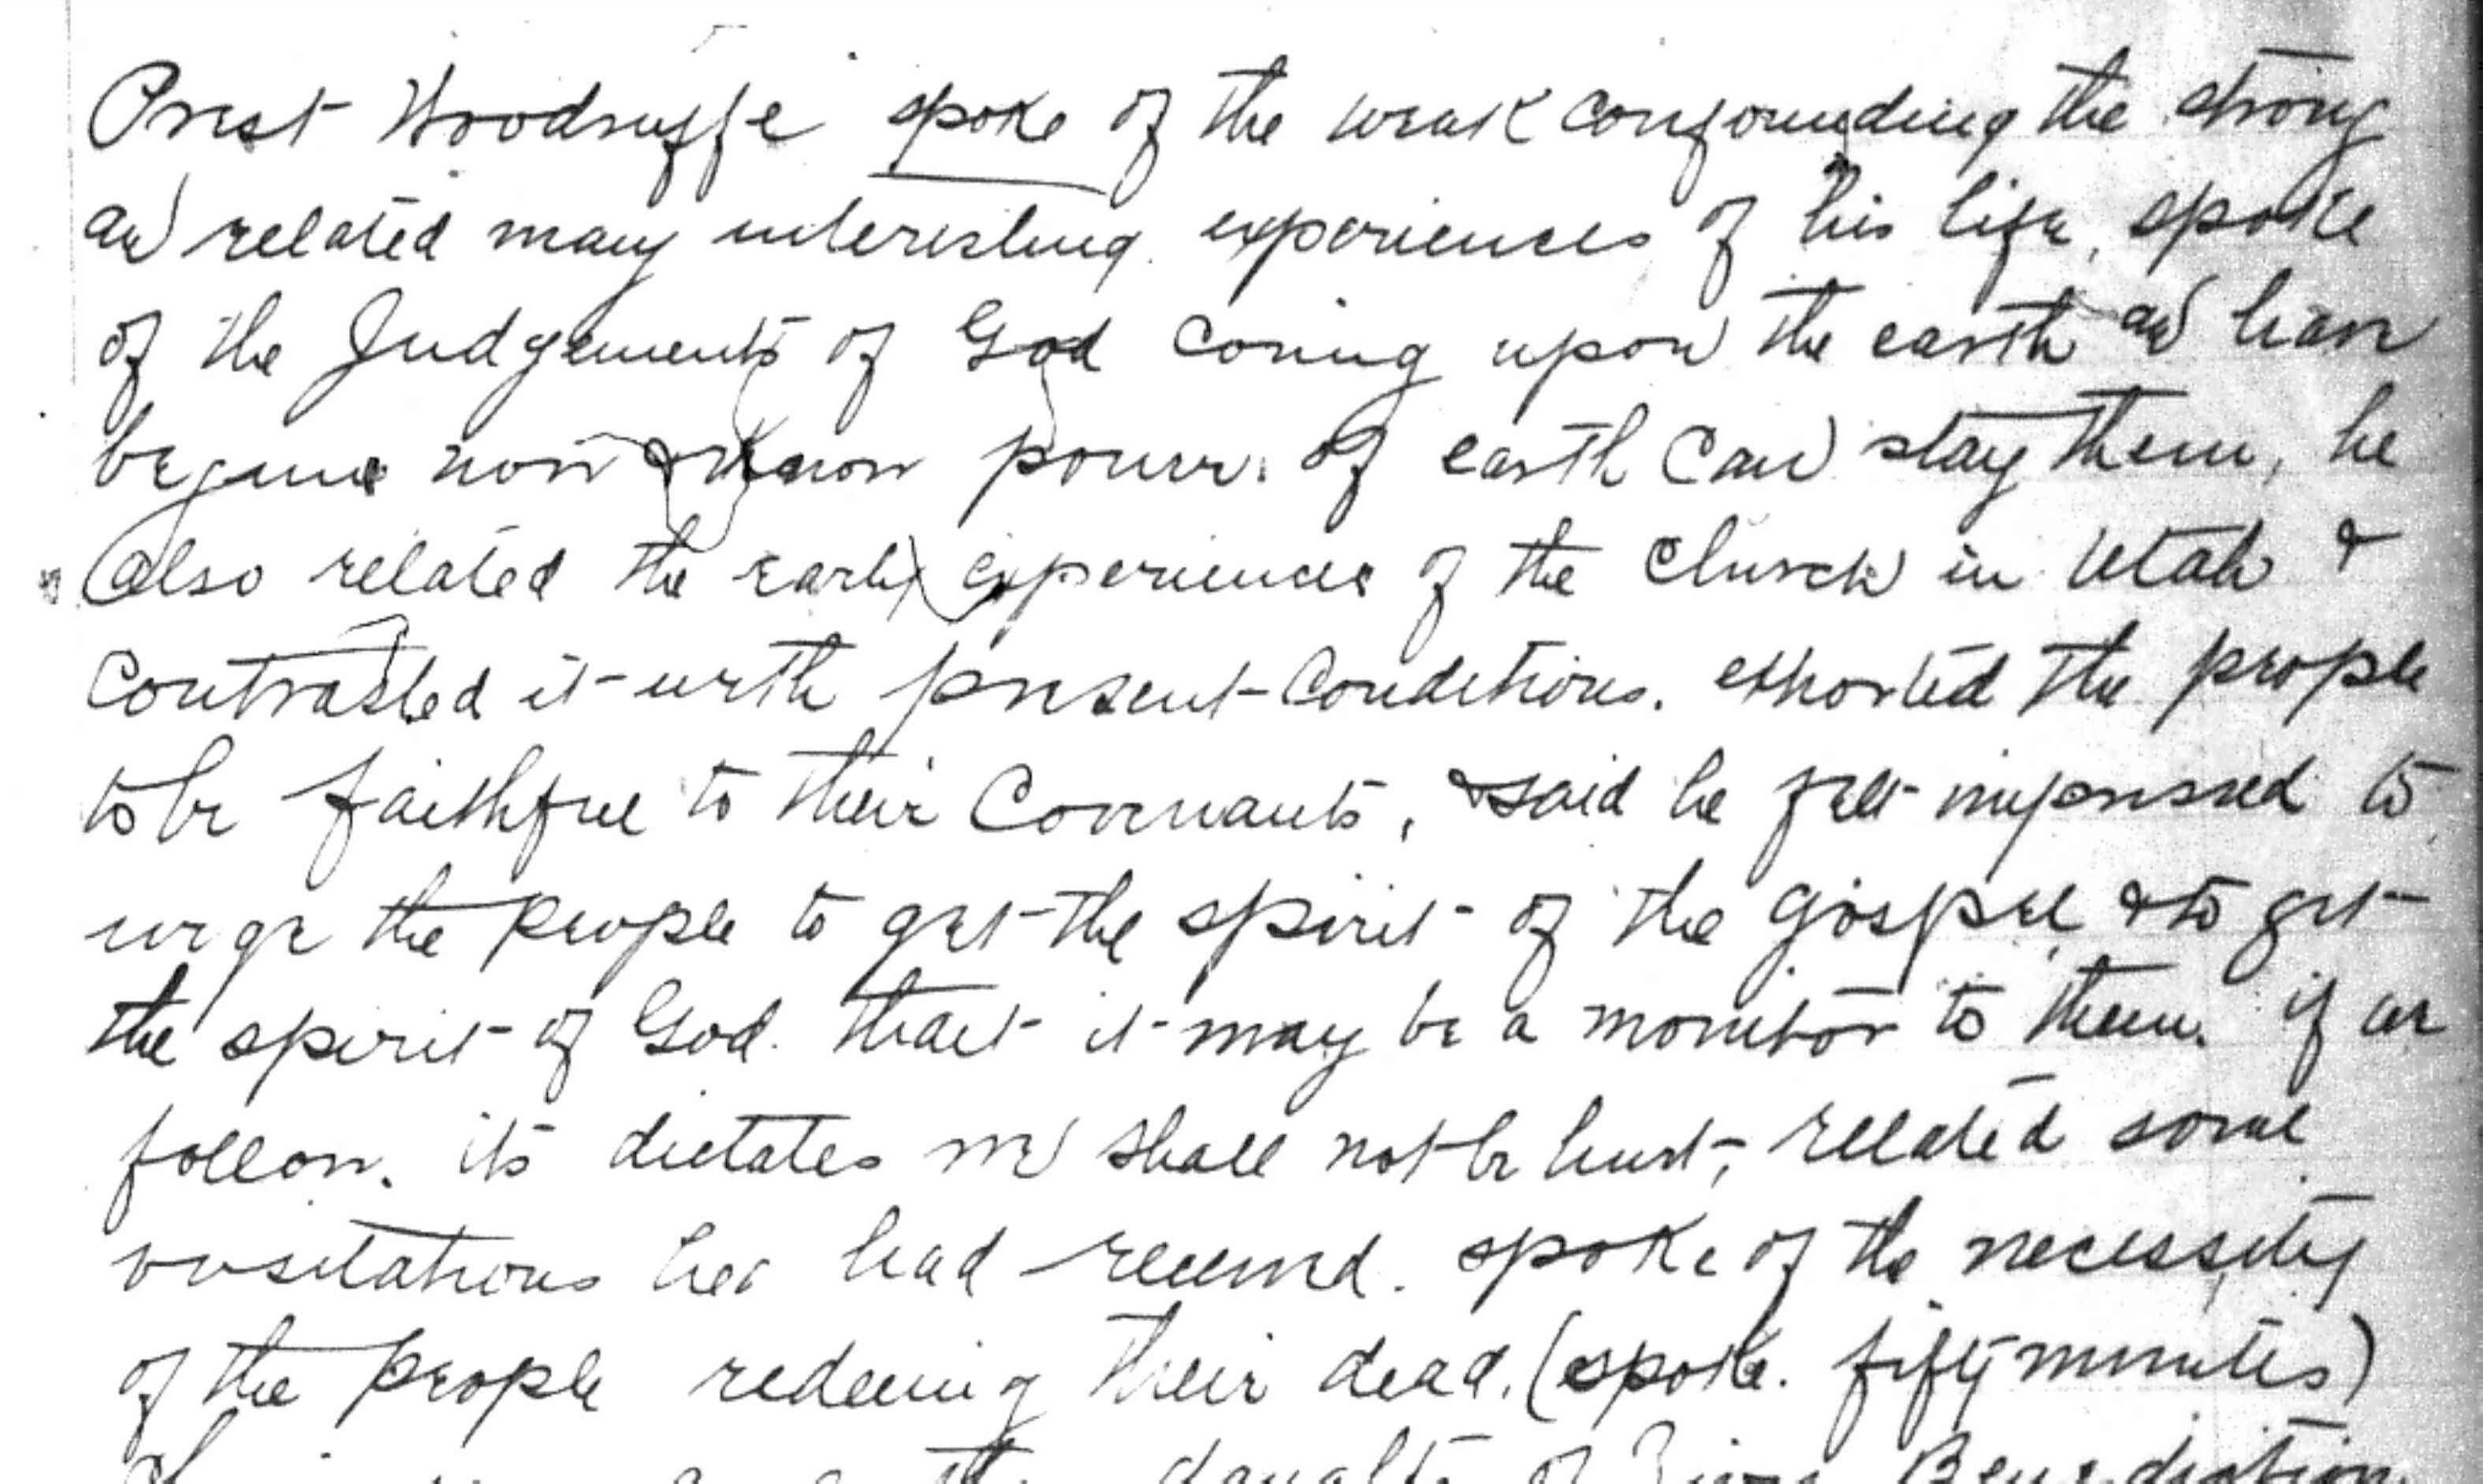 Prest Woodruffe spoke of the weak confounding the strong
and related many interesting experiences of his life, spoke
of the Judgements of God coming upon the earth and have
begun now & power of earth can stay them, he
also related the early experiences of the Church in Utah &
contrasted it with present conditions. exhorted the people
to be faithful to their Covenants, & said he felt impressed to
urge the people to get the spirit of the gospel & to get
the spirit of God. that it may be a monitor to them. if we
follow. its dictates we shall not be hurt, related some
visitations he had received. spoke of the necessity
of the people redeeming their dead. (spoke. fifty minutes)
daughters of Zion Benediction